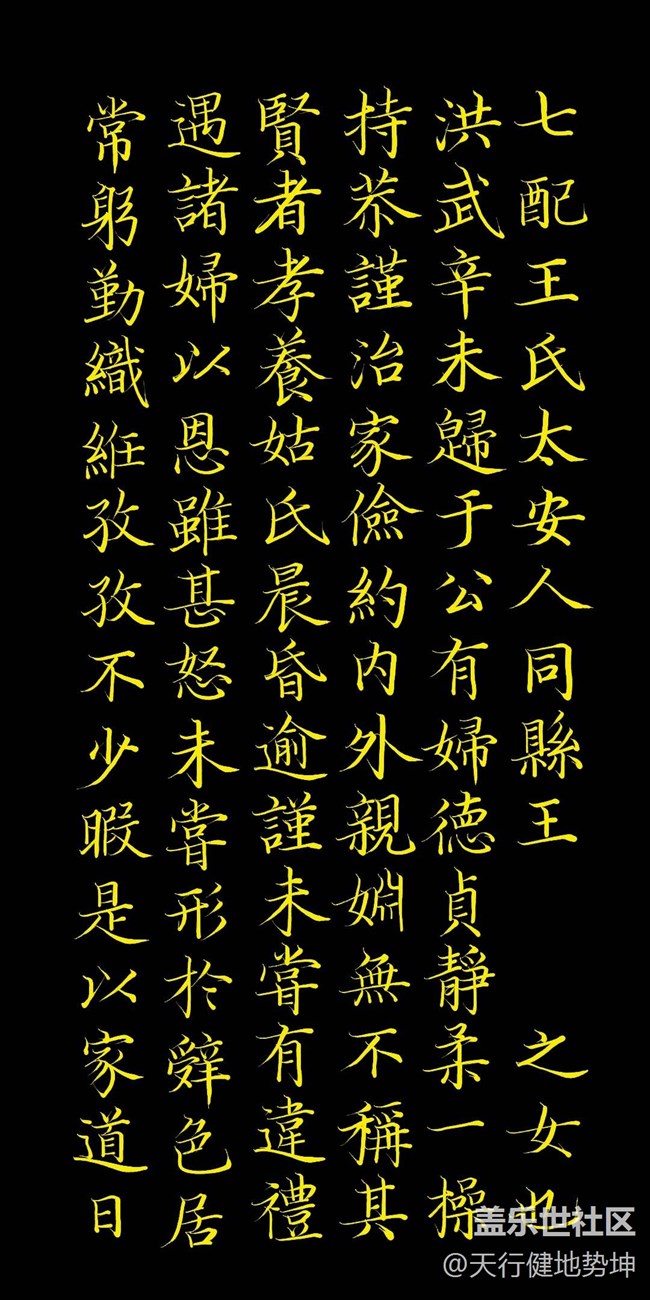 七配王氏太安人同縣王 之女也
洪武辛未歸于公有婦德貞靜柔一操
持恭謹治家儉約内外親婣無不稱其
賢者孝養姑氏晨昏逾謹未甞有違禮
遇諸婦以恩雖甚怒未甞形於辤色居
常躬勤織絍孜孜不少暇是以家道日
盖乐世社区
@天行健地势坤